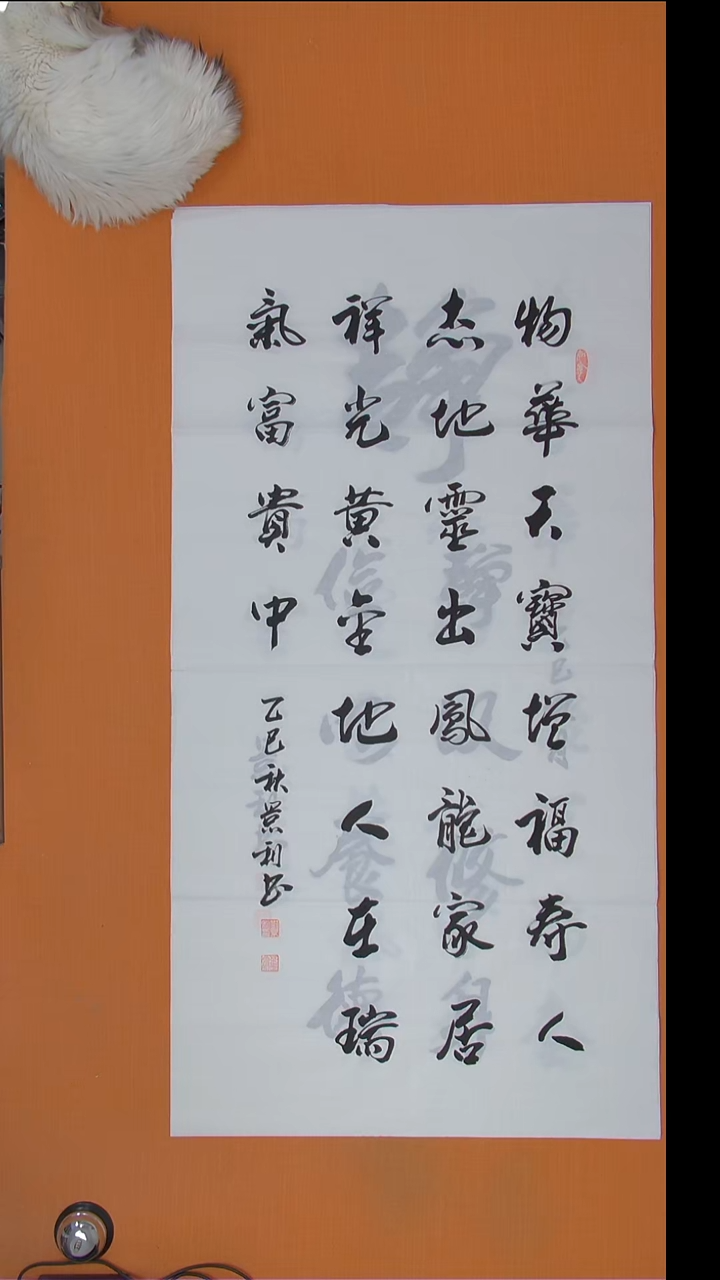 物華天寶增福壽人
杰地靈出鳳龍家居
祥光黃金地人在瑞
氣富貴中
乙巳秋景利书